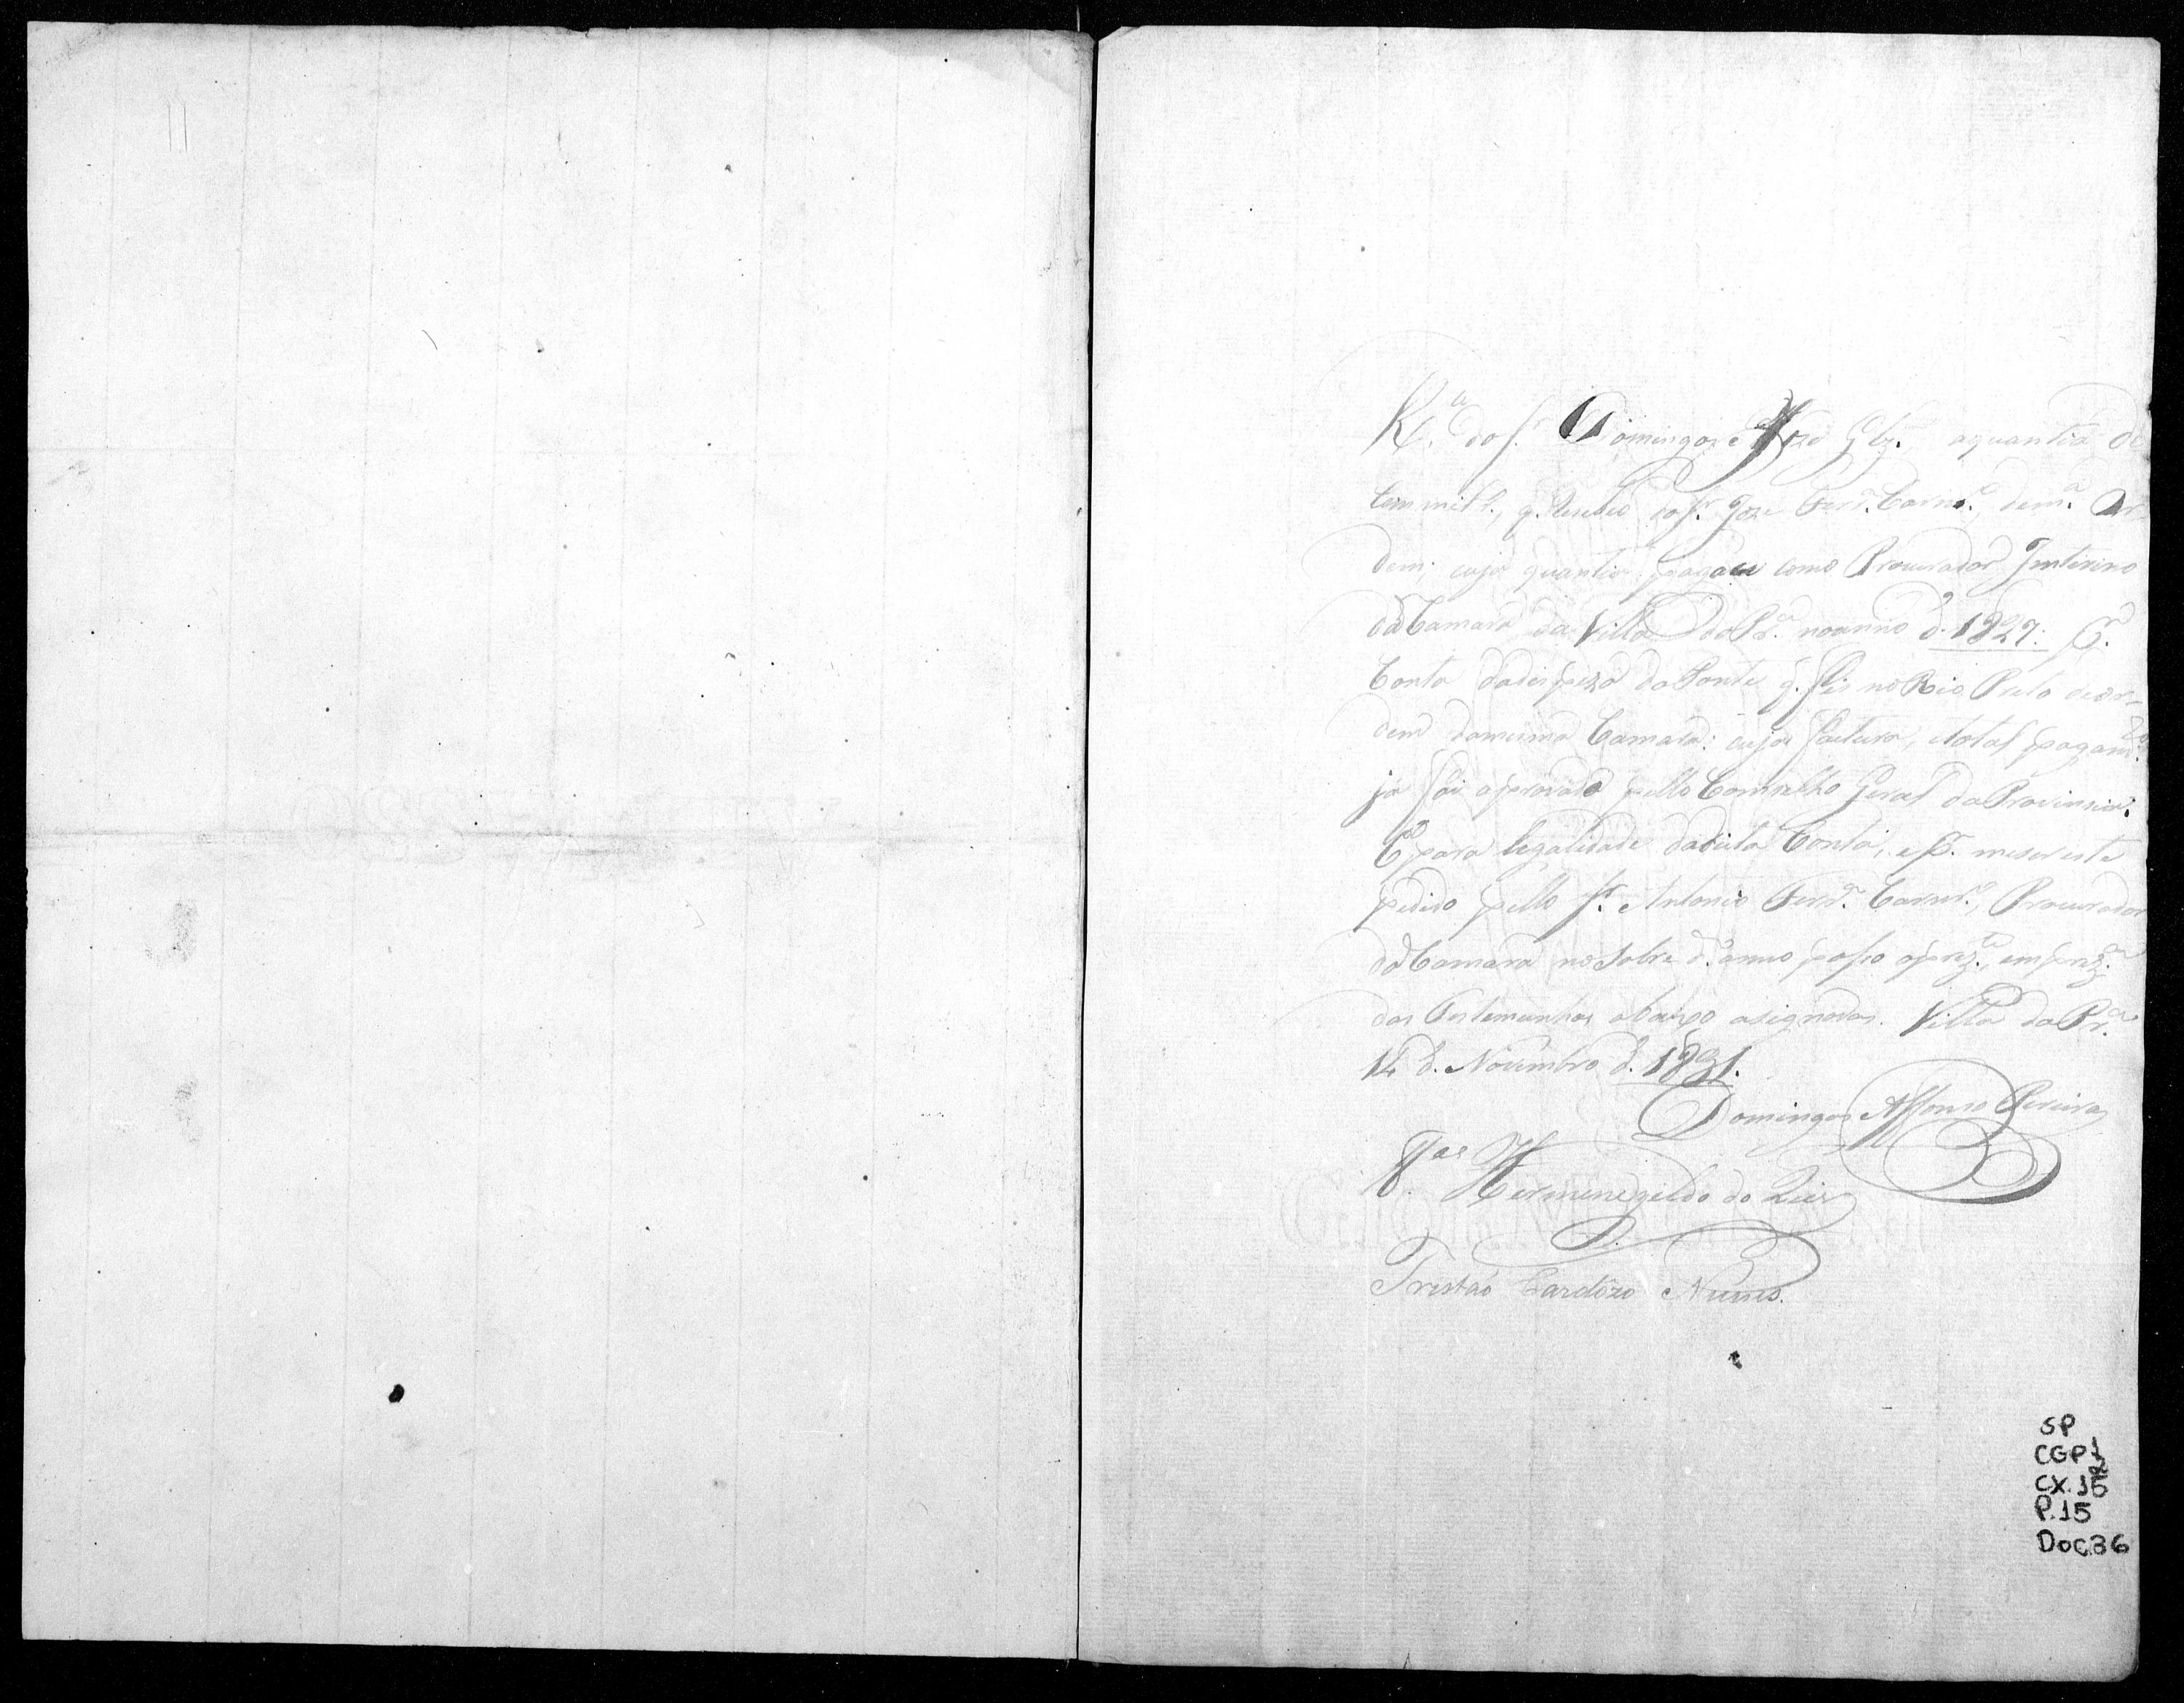 R.ª do S.r Domingos Joze Glz. aquantia de
Cem mil r.s, q. Recebeo do S.r Joze Ferr.ª Carnr.º, dem.ª Or-
dem; cuja quantia pagou como Procurador Jnterino
da Camara da Villa do Pr.e noanno d. 1827. P.ª
Conta dadespeza da Ponte q. fis no Rio Preto de or-
dem damesma Camara: cuja factura, e total pagam.to
já foi aprovada pello Comselho Geral da Provinsia.
E para legalidade dadita Conta, e P. meser este
pedido pello S.r Antonio Ferr.ª Carnr.º, Procurador
da Camara no sobre d.º anno paso o prez.te, em prez.ça
das Testemunhas abaixo asignadas. Villa do Pr.e
14 d. Novembro d. 1831.
Domingos Affonso Pereira
T.as Hermenegildo do
Tristão Cardozo Nunes.
SP
CGP1
CX.15
P.15
Doc.36